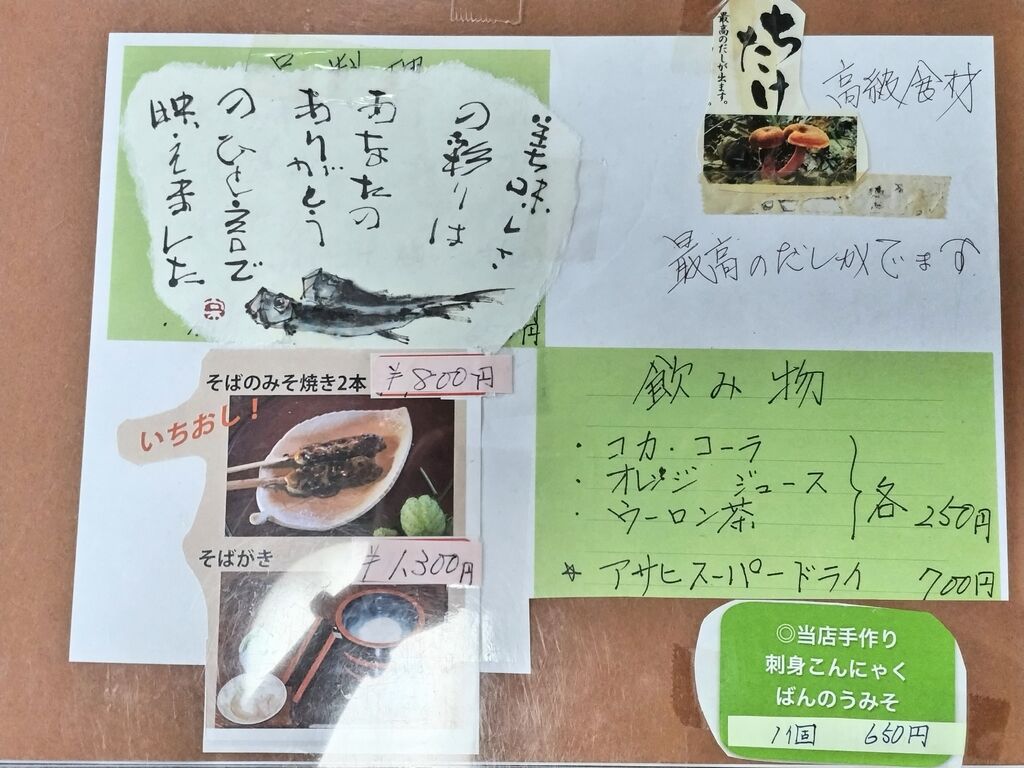 美味しさ
の彩りは
あなたの
ありがとう
のひと言で
映えました
円
ちたけ
最高のだしが出ます。
高級食材
最高のだしがでます
そばのみそ焼き2本
¥800円
いちおし!
そばがき
¥1,300円
飲み物
・コカ・コーラ
・オレンジ ジュース
・ウーロン茶
各250円
* アサヒスーパードライ 700円
◎当店手作り
刺身こんにゃく
ばんのうみそ
1個 650円